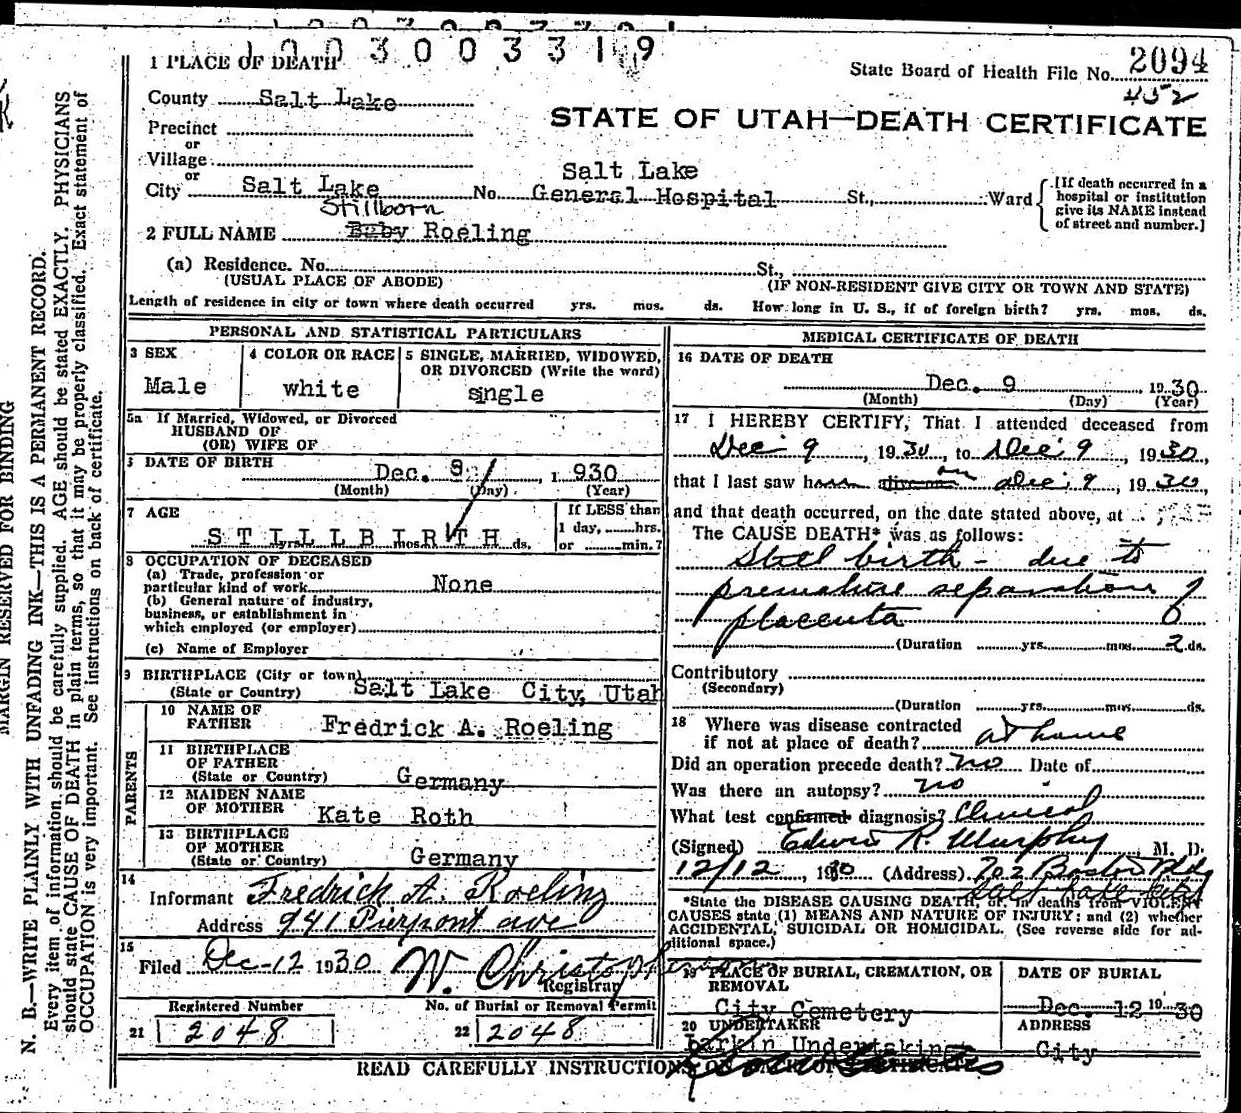 1 0 0 3 0 0 3 3 1 9
1 PLACE OF DEATH
State Board of Health File No. 2094
452
County Salt Lake
STATE OF UTAH—DEATH CERTIFICATE
Precinct
or
Village
or
City Salt Lake No. Salt Lake General Hospital St., Ward
[If death occurred in a hospital or institution give its NAME instead of street and number.]
Stillborn
2 FULL NAME Baby Roeling
(a) Residence. No. St.,
(USUAL PLACE OF ABODE) (IF NON-RESIDENT GIVE CITY OR TOWN AND STATE)
Length of residence in city or town where death occurred yrs. mos. ds. How long in U. S., if of foreign birth? yrs. mos. ds.
PERSONAL AND STATISTICAL PARTICULARS
3 SEX
Male
4 COLOR OR RACE
white
5 SINGLE, MARRIED, WIDOWED,
OR DIVORCED (Write the word)
sngle
5a If Married, Widowed, or Divorced
HUSBAND OF
(OR) WIFE OF
DATE OF BIRTH
Dec. 9, 1930
(Month) (Day) (Year)
7 AGE
STILLBIRTH
yrs. mos. ds.
If LESS than
1 day, hrs.
or min.?
8 OCCUPATION OF DECEASED
(a) Trade, profession or
particular kind of work None
(b) General nature of industry,
business, or establishment in
which employed (or employer)
(c) Name of Employer
9 BIRTHPLACE (City or town)
(State or Country) Salt Lake City, Utah
PARENTS
10 NAME OF
FATHER Fredrick A. Roeling
11 BIRTHPLACE
OF FATHER
(State or Country) Germany
12 MAIDEN NAME
OF MOTHER Kate Roth
13 BIRTHPLACE
OF MOTHER
(State or Country) Germany
14
Informant Fredrick A. Roeling
Address 941 Pierpont ave
15
Filed Dec-12 1930 W. Christopherson
Registrar
Registered Number
21 2048
No. of Burial or Removal Permit
22 2048
MEDICAL CERTIFICATE OF DEATH
16 DATE OF DEATH
Dec. 9 1930
(Month) (Day) (Year)
17 I HEREBY CERTIFY, That I attended deceased from
Dec 9, 1930, to Dec 9, 1930,
that I last saw h alive on Dec 9, 1930,
and that death occurred, on the date stated above, at
The CAUSE DEATH* was as follows:
Still birth - due to
premature separation of
placenta
(Duration yrs. mos. 2 ds.
Contributory
(Secondary)
(Duration yrs. mos. ds.
18 Where was disease contracted
if not at place of death? at home
Did an operation precede death? no Date of
Was there an autopsy? no
What test confirmed diagnosis? Clinical
(Signed) Edwin R. Murphy, M. D.
12/12, 1930 (Address) 702 Boston Bldg
Salt Lake City
*State the DISEASE CAUSING DEATH, or, in deaths from VIOLENT
CAUSES state (1) MEANS AND NATURE OF INJURY; and (2) whether
ACCIDENTAL, SUICIDAL OR HOMICIDAL. (See reverse side for ad-
ditional space.)
19 PLACE OF BURIAL, CREMATION, OR
REMOVAL
City Cemetery
DATE OF BURIAL
Dec. 12 1930
20 UNDERTAKER
Larkin Undertaking
ADDRESS
City
READ CAREFULLY INSTRUCTIONS ON BACK OF CERTIFICATE
MARGIN RESERVED FOR BINDING
N. B.—WRITE PLAINLY WITH UNFADING INK—THIS IS A PERMANENT RECORD.
Every item of information should be carefully supplied. AGE should be stated EXACTLY. PHYSICIANS
should state CAUSE OF DEATH in plain terms, so that it may be properly classified. Exact statement of
OCCUPATION is very important. See instructions on back of certificate.